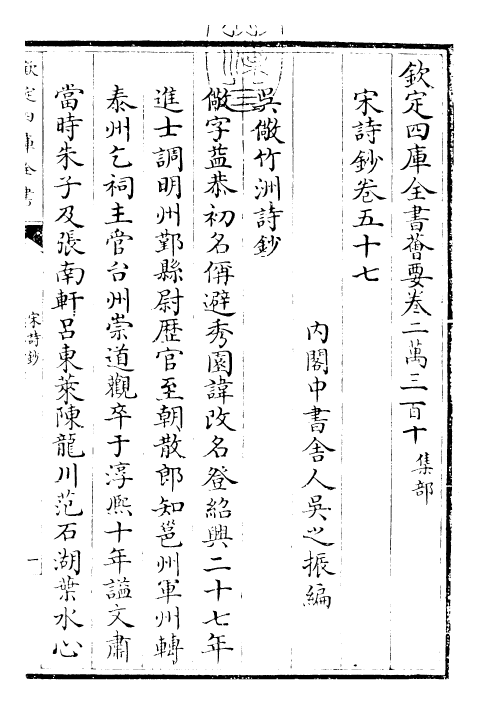 欽定四庫全書薈要卷二萬三百十 集部
宋詩鈔卷五十七
內閣中書舍人吳之振編
吳儆竹洲詩鈔
儆字益恭初名偁避秀園諱改名登紹興二十七年
進士調明州鄞縣尉歴官至朝散郎知邕州軍州轉
泰州乞祠主管台州崇道觀卒于淳熙十年謚文肅
當時朱子及張南軒呂東萊陳龍川范石湖葉水心
欽定四庫全書
宋詩鈔
一